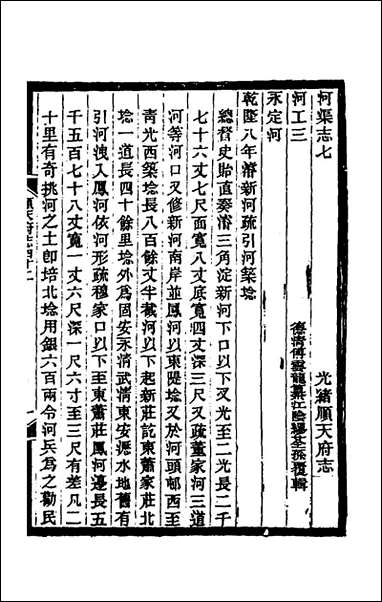 河渠志七
光緒順天府志
河工三
德清傅雲龍纂江陰繆荃孫覆輯
永定河
乾隆八年濬新河疏引河築埝
總督史貽直奏濬三角淀新河下口以下叉光至二光長二千
七十六丈七尺面寬八丈底寬四丈深三尺又疏董家河三道
河等河口又修新河南岸並鳳河以東隄埝又於河頭邨西至
青光西築埝長八百餘丈半截河以下起新莊訖東蕭家莊北
埝一道長四十餘里埝外爲固安永清武清東安瀝水地舊有
引河洩入鳳河依河形疏穆家口以下至東蕭莊鳳河邊長五
千五百七十八丈寬一丈六尺深一尺六寸至三尺有差凡二
十里有奇挑河之土卽培北埝用銀六百兩令河兵爲之勸民
順天府志四十二